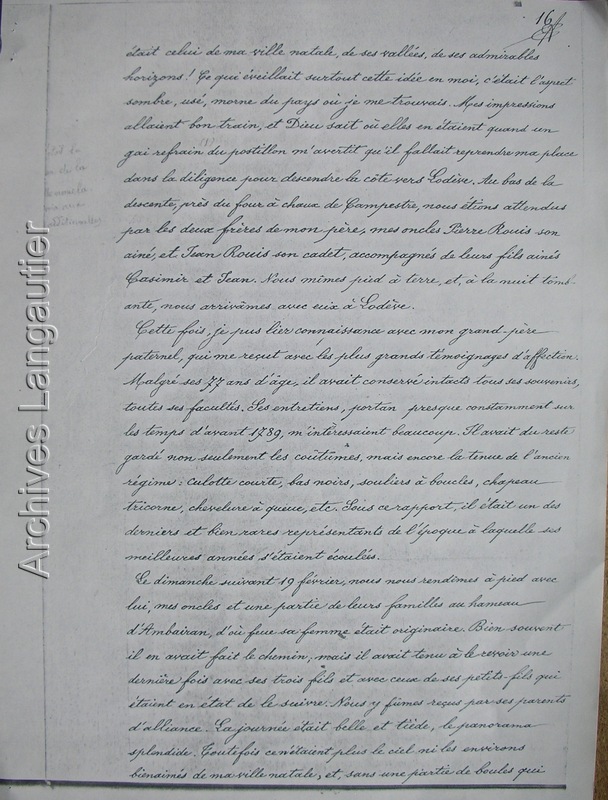 16
était celui de ma ville natale, de ses vallées, de ses admirables
horizons! Ce qui éveillait surtout cette idée en moi, c'était l'aspect
sombre, usé, morne du pays où je me trouvais. Mes impressions
allaient bon train, et Dieu sait où elles en étaient quand un
gai refrain du postillon m'avertit qu'il fallait reprendre ma place
dans la diligence pour descendre la côte vers Lodève. Au bas de la
descente, près du four à chaux de Campestre, nous étions attendus
par les deux frères de mon père, mes oncles Pierre Rouis son
ainé, et Jean Rouis son cadet, accompagnés de leurs fils ainés
Casimir et Jean. Nous mîmes pied à terre, et, à la nuit tomb-
ante, nous arrivâmes avec eux à Lodève.
Cette fois, je pus lier connaissance avec mon grand-père
paternel, qui me reçut avec les plus grands témoignages d'affection.
Malgré ses 77 ans d'âge, il avait conservé intacts tous ses souvenirs,
toutes ses facultés. Ses entretiens, portan presque constamment sur
les temps d'avant 1789, m'intéressaient beaucoup. Il avait du reste
gardé non seulement les coûtumes, mais encore la tenue de l'ancien
régime: culotte courte, bas noirs, souliers à boucles, chapeau
tricorne, chevelure à queue, etc. Sous ce rapport, il était un des
derniers et bien rares représentants de l'époque à laquelle ses
meilleures années s'étaient écoulées.
Le dimanche suivant 19 février, nous nous rendîmes à pied avec
lui, mes oncles et une partie de leurs familles au hameau
d'Ambairan, d'où feue sa femme était originaire. Bien souvent
il en avait fait le chemin, mais il avait tenu à le revoir une
dernière fois avec ses trois fils et avec ceux de ses petits fils qui
étaient en état de le suivre. Nous y fûmes reçus par ses parents
d'alliance. La journée était belle et tiède, le panorama
splendide. Toutefois ce n'étaient plus le ciel ni les environs
bienaimés de ma ville natale, et, sans une partie de boules qui
Archives Langautier